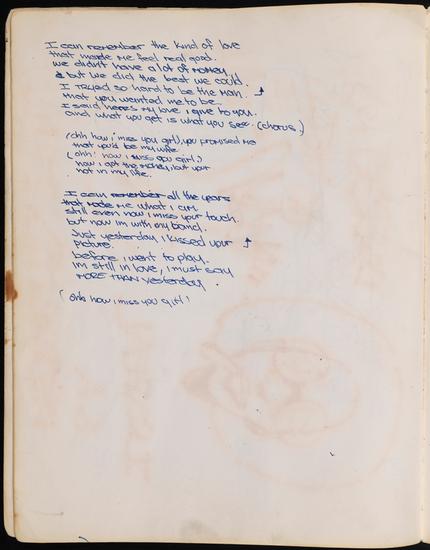 I can remember the kind of love
that made me feel real good.
we didn't have a lot of money
& but we did the best we could.
I tryed so hard to be the man.
that you wanted me to be.
I said heres my love i give to you.
and what you get is what you see. (chorus.)
(ohh how i miss you girl), you promised me
that you'd be my wife
(ohh! how i miss you girl)
now i got the money, but your
not in my life.
I can remember all the years
that made me what i am
still even now i miss your touch.
but now im with my band.
Just yesterday i kissed your
picture.
before i went to play.
im still in love, i must say
MORE THAN yesterday.
(ohh how i miss you girl!